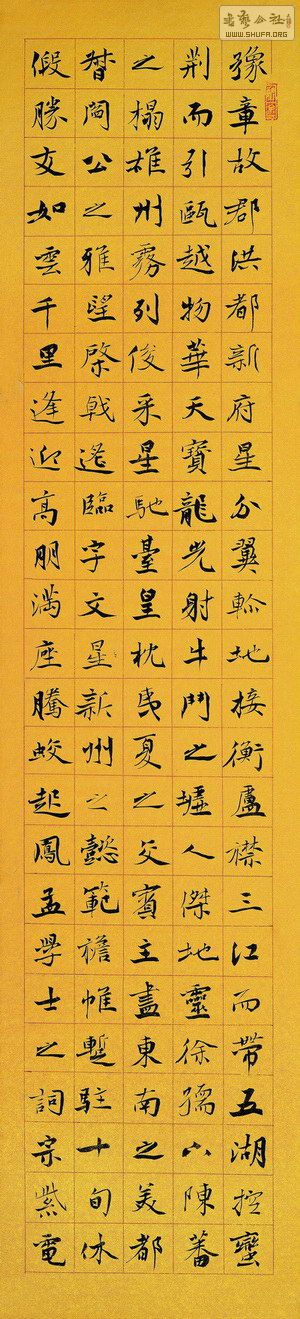 豫章故郡洪都新府星分翼軫地接衡廬襟三江而帶五湖控蠻
荆而引甌越物華天寶龍光射牛鬥之墟人傑地靈徐孺下陳蕃
之榻雄州霧列俊采星馳臺皇枕夷夏之交賓主盡東南之美都
督閻公之雅望棨戟遥臨宇文星新州之懿範襜帷暫駐十旬休
假勝友如雲千里逢迎高朋滿座騰蛟起鳳孟學士之詞宗紫電
WWW.SHUFA.ORG